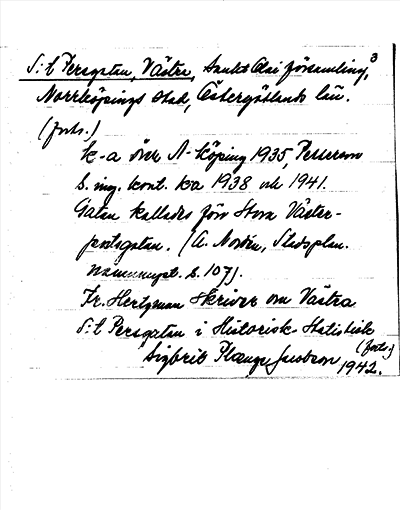 S:t Persgatan, Västra, Sankt Olai församling, 3
Norrköpings stad, Östergötlands län.
(forts.)
K-a över N-köping 1935, Petterson
S. ing. kont. ka 1938 och 1941.
Gatan kallades förr Stora Väster-
portsgatan. (A. Nordén, Stadsplan.
namnuppst. s. 107).
Fr. Hertzman skriver om Västra
S:t Persgatan i Historisk-Statistisk
(forts.)
Sigbrit Plænge Jacobson 1942.